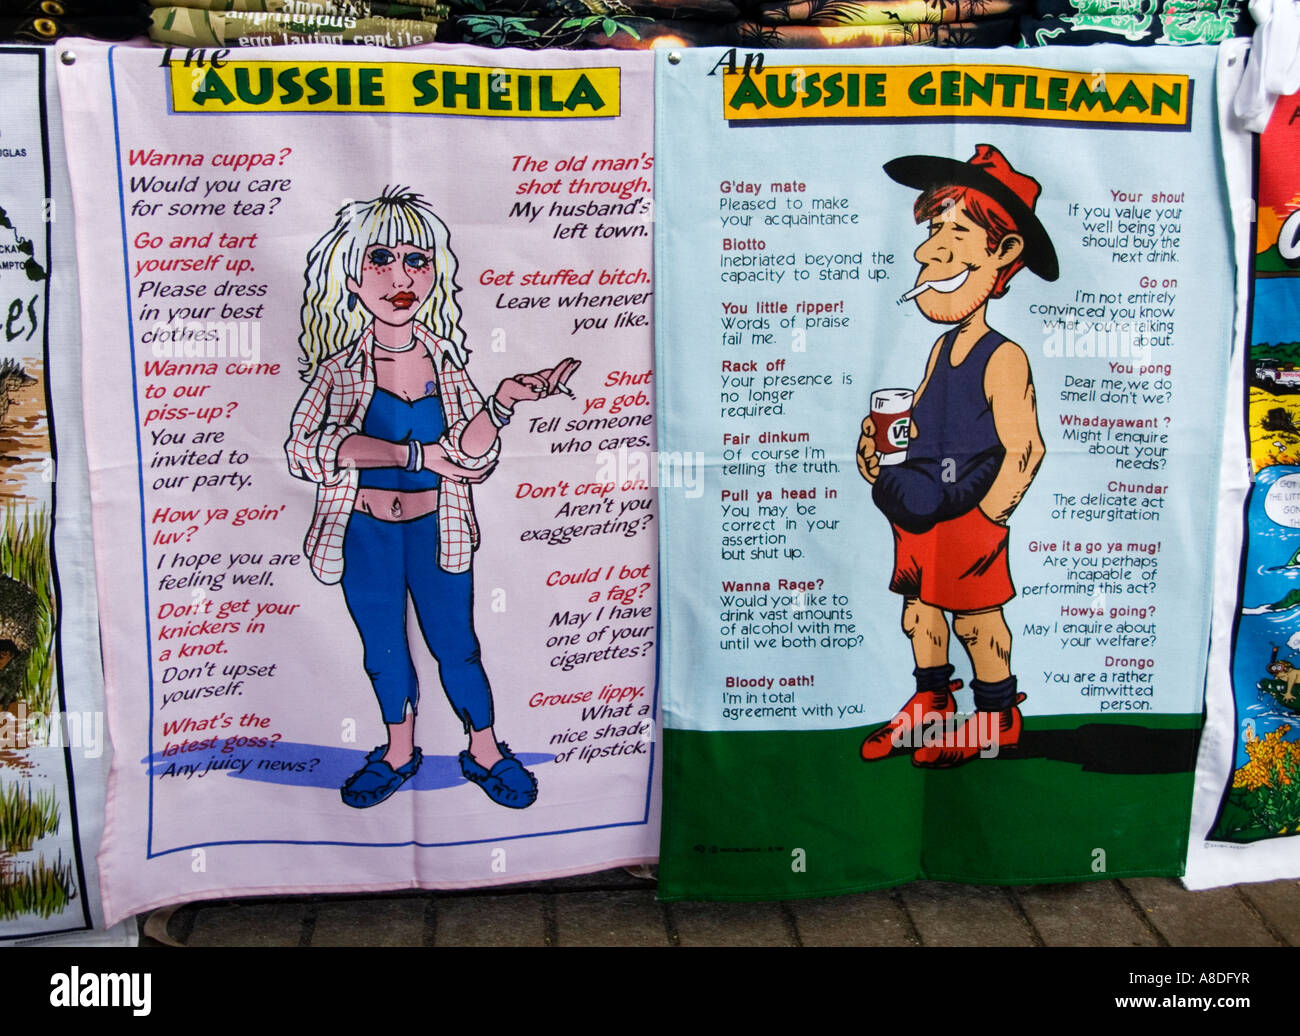 amphibious
egg laying reptile
The
AUSSIE SHEILA
Wanna cuppa?
Would you care
for some tea?
Go and tart
yourself up.
Please dress
in your best
clothes.
Wanna come
to our
piss-up?
You are
invited to
our party.
How ya goin'
luv?
I hope you are
feeling well.
Don't get your
knickers in
a knot.
Don't upset
yourself.
What's the
latest goss?
Any juicy news?
The old man's
shot through.
My husband's
left town.
Get stuffed bitch.
Leave whenever
you like.
Shut
ya gob.
Tell someone
who cares.
Don't crap on.
Aren't you
exaggerating?
Could I bot
a fag?
May I have
one of your
cigarettes?
Grouse lippy.
What a
nice shade
of lipstick.
An
AUSSIE GENTLEMAN
G'day mate
Pleased to make
your acquaintance
Blotto
Inebriated beyond the
capacity to stand up.
You little ripper!
Words of praise
fail me.
Rack off
Your presence is
no longer
required.
Fair dinkum
Of course I'm
telling the truth.
Pull ya head in
You may be
correct in your
assertion
but shut up.
Wanna Rage?
Would you like to
drink vast amounts
of alcohol with me
until we both drop?
Bloody oath!
I'm in total
agreement with you.
VB
Your shout
If you value your
well being you
should buy the
next drink.
Go on
I'm not entirely
convinced you know
what you're talking
about.
You pong
Dear me, we do
smell don't we?
Whadayawant ?
Might I enquire
about your
needs?
Chundar
The delicate act
of regurgitation
Give it a go ya mug!
Are you perhaps
incapable of
performing this act?
Howya going?
May I enquire about
your welfare?
Drongo
You are a rather
dimwitted
person.
alamy
Image ID: A8DFYR
www.alamy.com